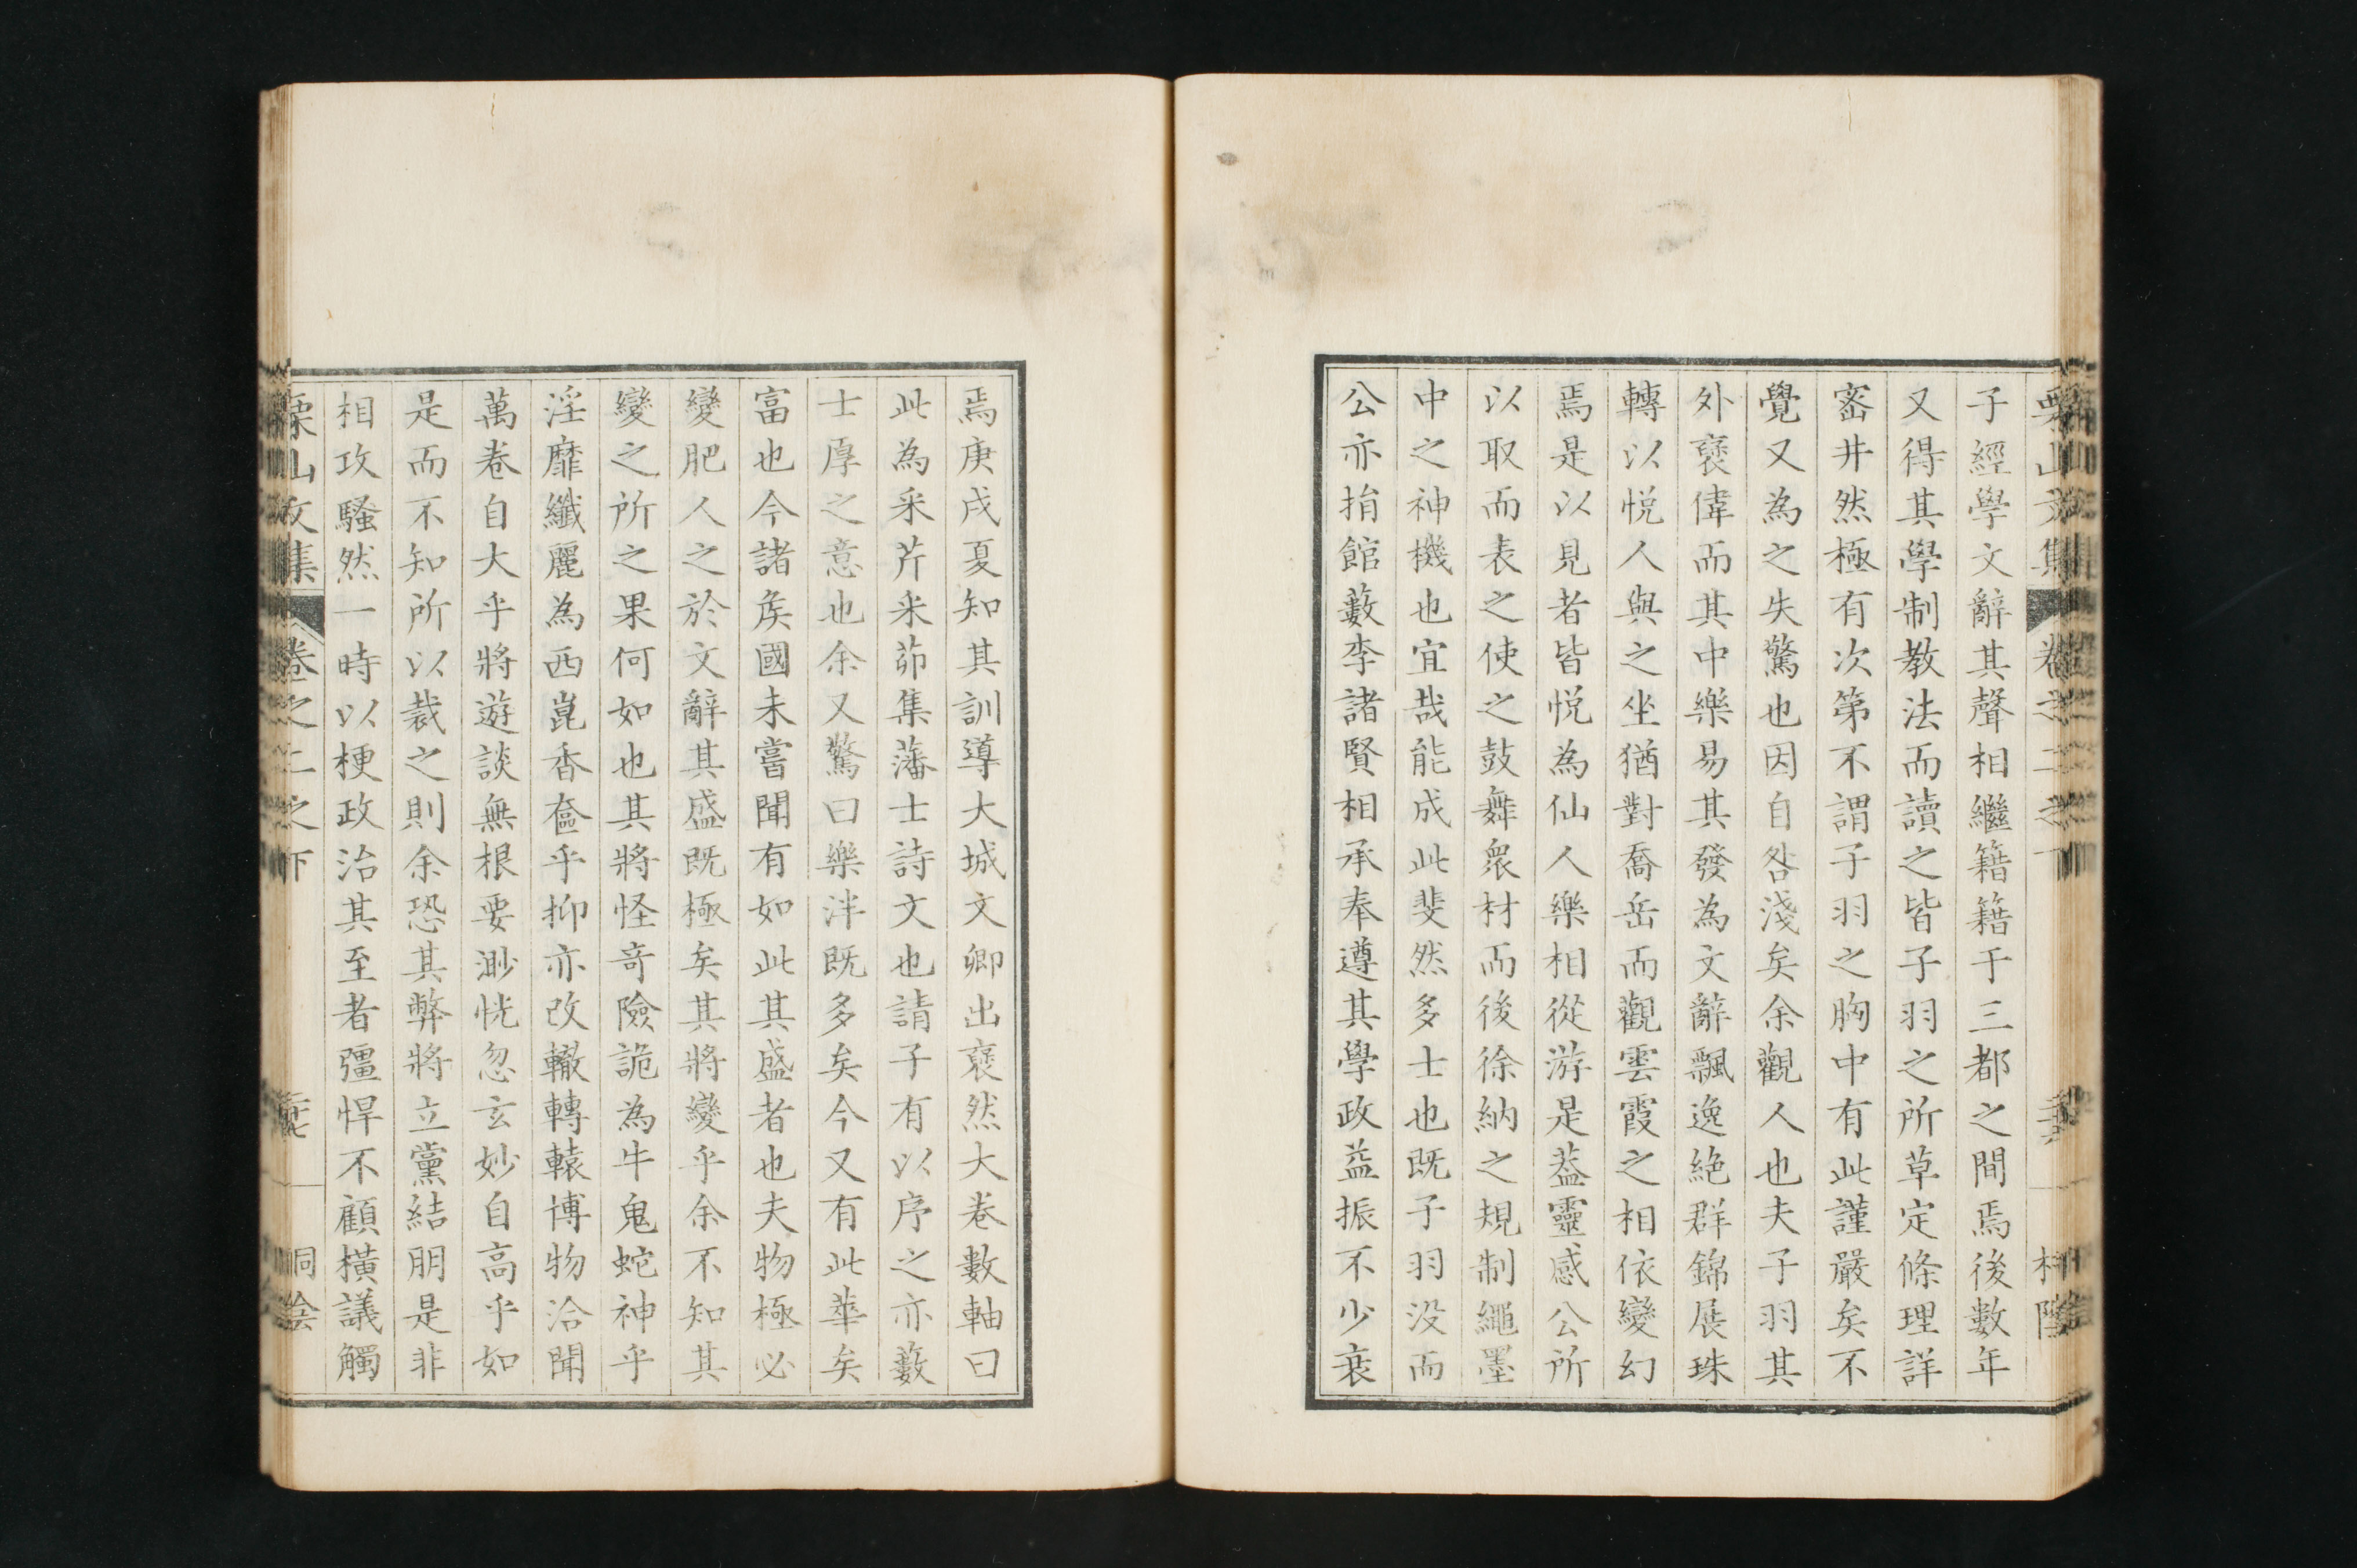 子經學文辭其聲相繼籍籍于三都之間焉後數年
又得其學制教法而讀之皆子羽之所草定條理詳
密井然極有次第不謂子羽之胸中有此謹嚴矣不
覺又為之失驚也因自咎淺矣余觀人也夫子羽其
外褒偉而其中樂易其發為文辭飄逸絶群錦展珠
轉以悦人與之坐猶對喬岳而觀雲霞之相依變幻
焉是以見者皆悦為仙人樂相從游是葢靈感公所
以取而表之使之鼓舞衆材而後徐納之規制繩墨
中之神機也宜哉能成此斐然多士也既子羽没而
公亦捐館藪李諸賢相承奉遵其學政益振不少衰
焉庚戌夏知其訓導大城文卿出褎然大卷數軸曰
此為采芹采茆集藩士詩文也請子有以序之亦藪
士厚之意也余又驚曰樂泮既多矣今又有此華矣
富也今諸矦國未嘗聞有如此其盛者也夫物極必
變肥人之於文辭其盛既極矣其將變乎余不知其
變之所之果何如也其將怪奇險詭為牛鬼蛇神乎
淫靡纖麗為西崑香奩乎抑亦改轍轉轅博物洽聞
萬卷自大乎將遊談無根要渺恍忽玄妙自高乎如
是而不知所以裁之則余恐其弊將立黨結朋是非
相攻騷然一時以梗政治其至者彊悍不顧橫議觸
栗山文集 卷之二之下 桐陰